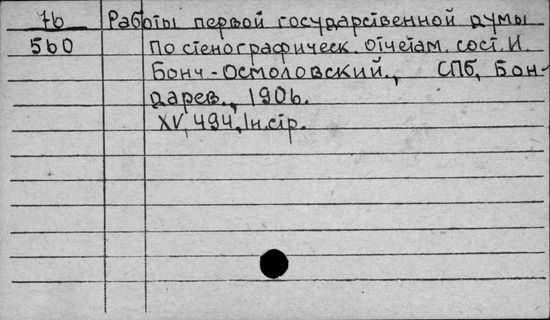 76 Работы первой государственной думы
560 По стенографическ. отчетам сост. И.
Бонч-Осмоловский., СПб, Бон-
дарев., 1906.
XV, 494, 1н.стр.